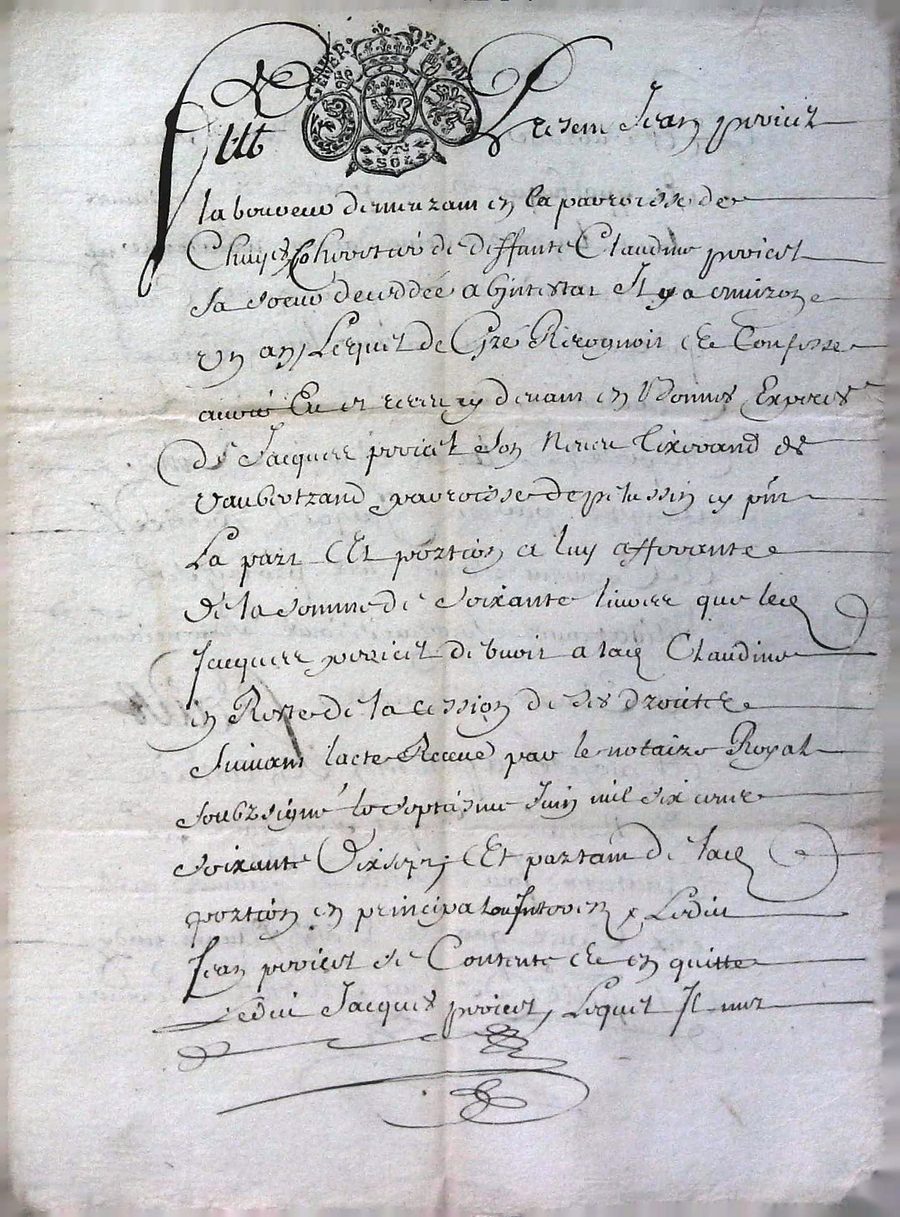 GENER. DE LION
UN SOL
Fut Present Jean poviest
laboureur demeurant en la parroisse de
Chuyes cohorotier de deffunte Claudine poviest
sa soeur deceddée abjntestat Il y a environ
un an, Lequel de Gré Recognoit et Confesse
avoir Eu et receu cy devant en bonnes Especes
de Jacques poviest son Neveu tixerand de
vaubertrand parroisse de pelussin cy pnt
La part Et portion a luy afferante
de la somme de soixante livres que led
Jacques poviest debvoit a lad Claudine
en Reste de la cession de ses droitz
suivant lacte Receu par le notaire Royal
soubzsigné le septiesme Juin mil six centz
soixante Dixsept; Et partant de lad
portion en principal ou Interetz Ledit
Jean poviest se Contente et en quitte
Ledit Jacques poviest, Lequel Jl